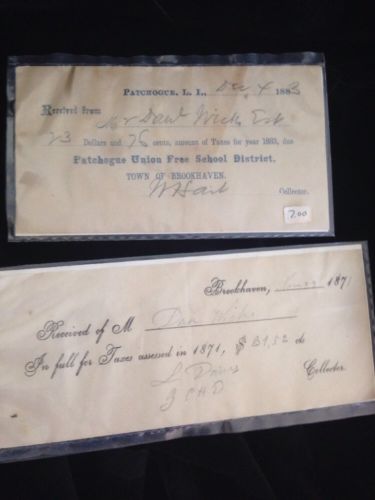 PATCHOGUE, L. I., Dec 4 1883
Received from
Mr Danl Wicks Esk
23 Dollars and 76 cents, amount of Taxes for year 1883, due
Patchogue Union Free School District.
TOWN OF BROOKHAVEN.
Collector.
7.00
Brookhaven, 1871
Received of M. Dan Wicks
In full for Taxes assessed in 1871, $ 31,52 cts
L Davis Collector.